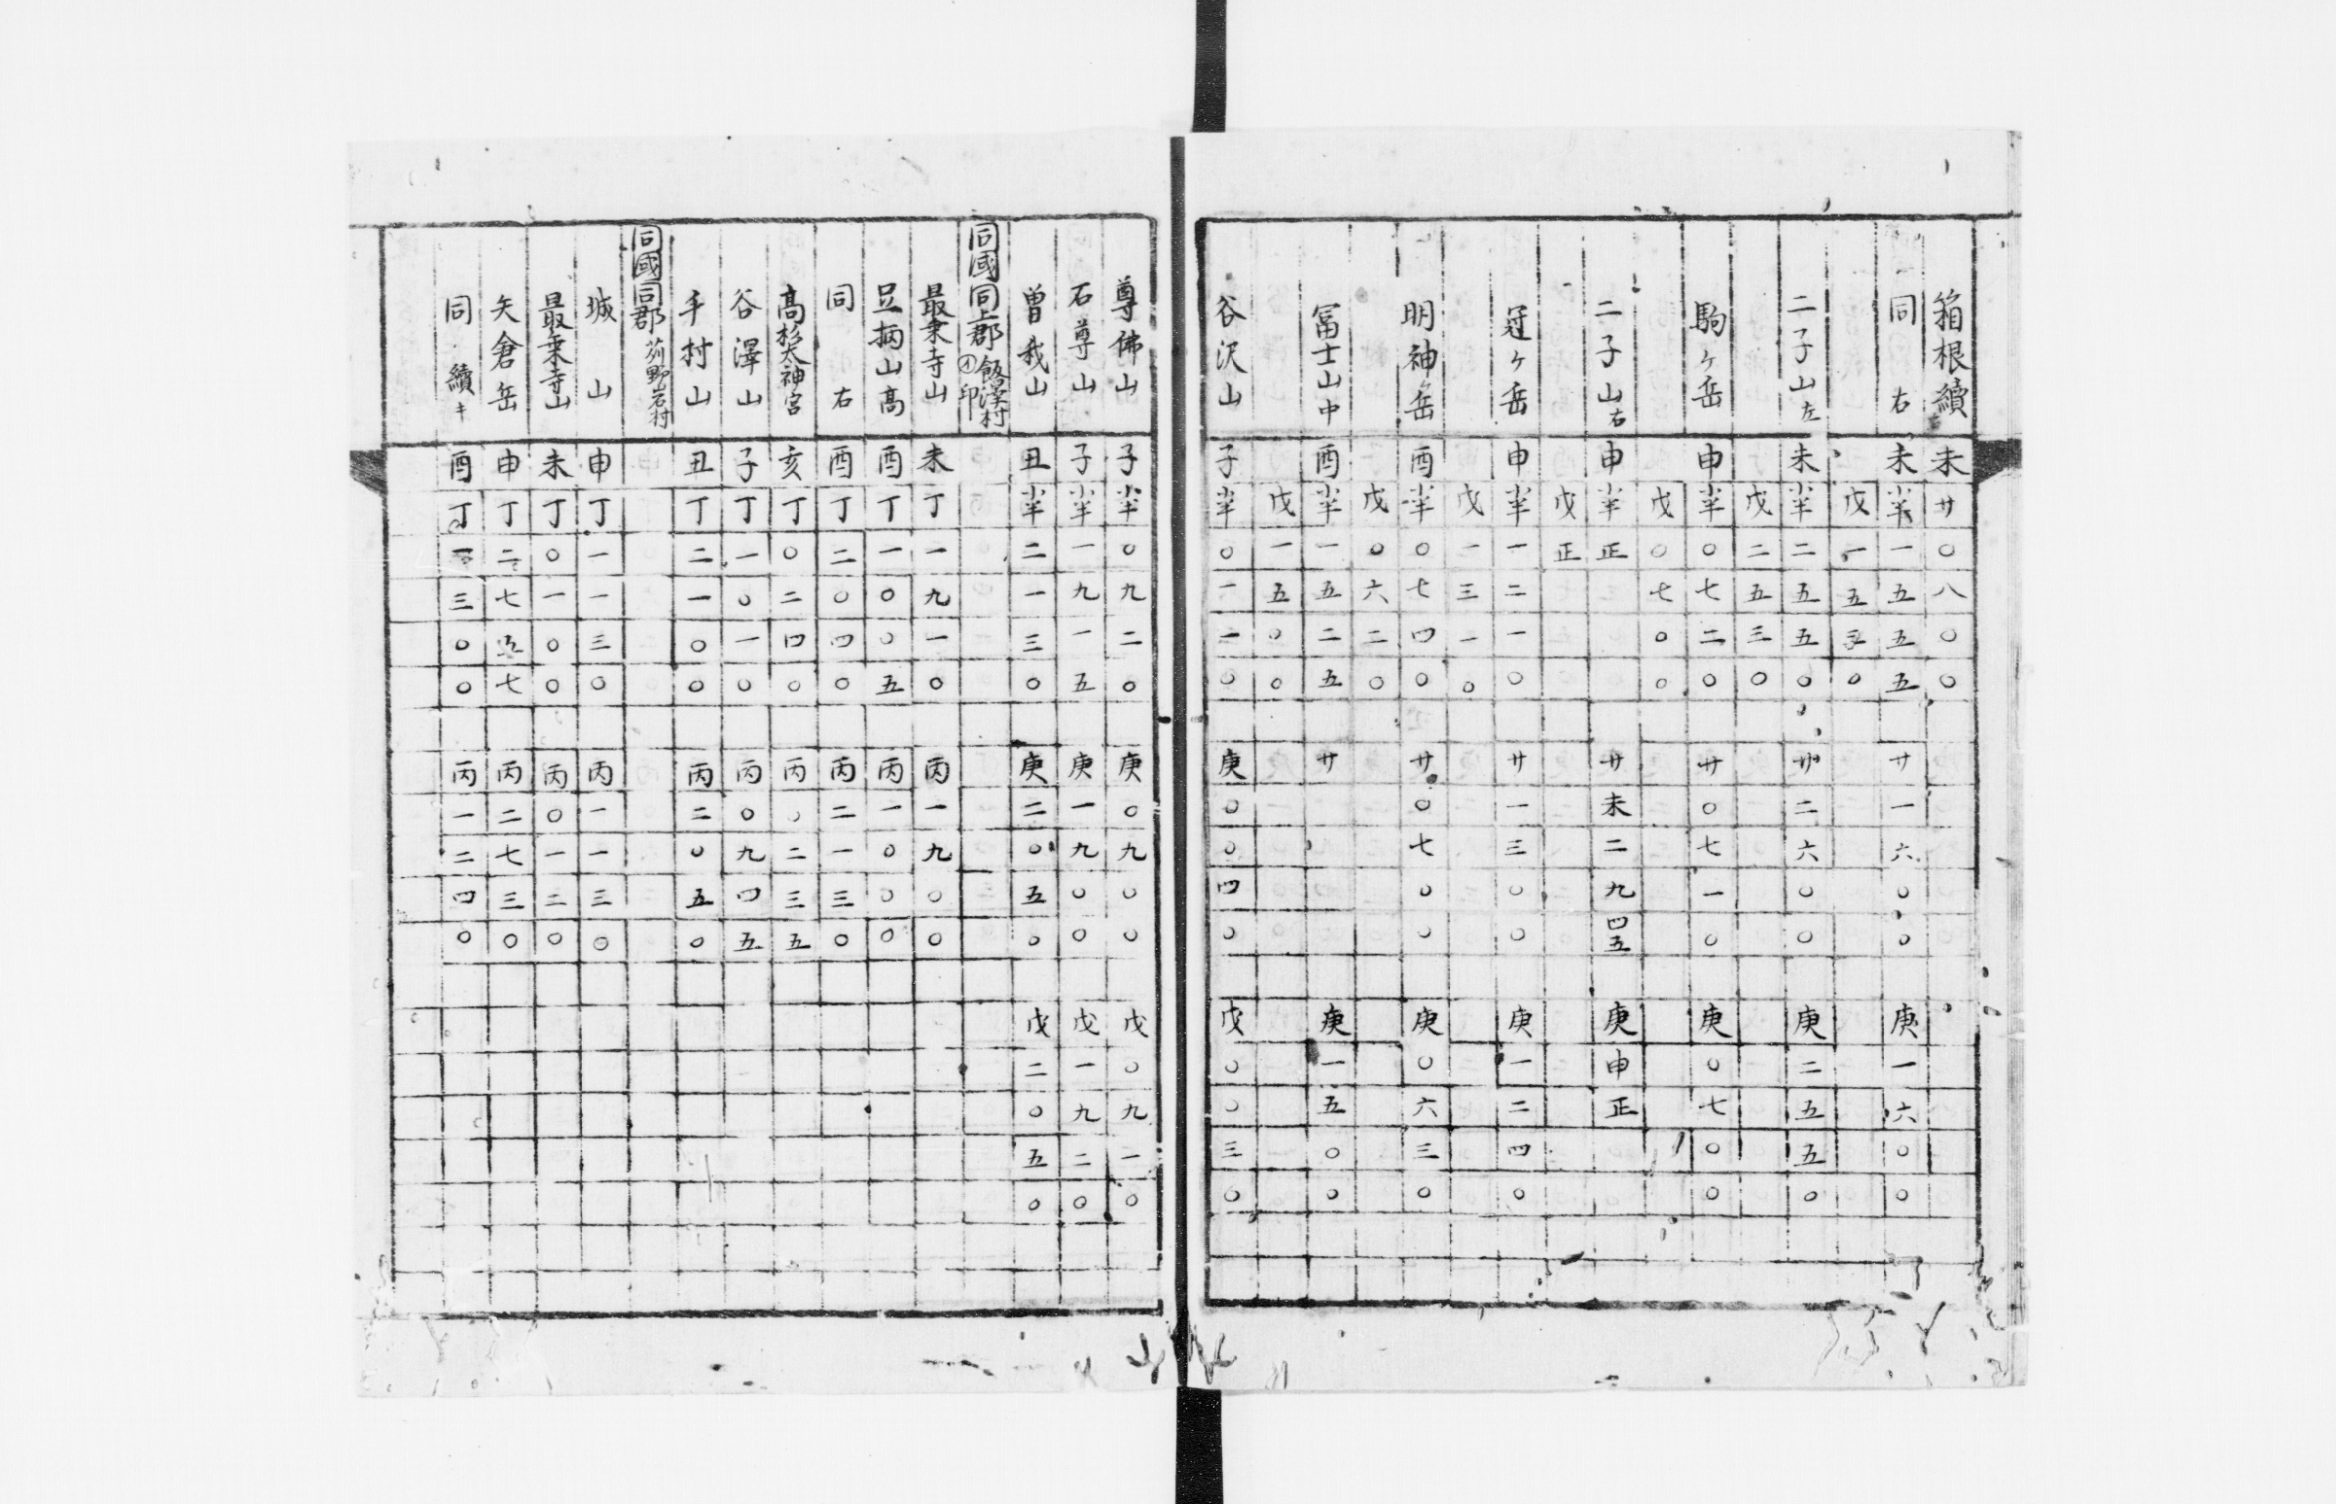 箱根續 未 廿 〇 八 〇 〇
同 右 未 半 一 五 五 五 廿 一 六 〇 〇 庚 一 六 〇 〇
戊 一 五 三 〇
二子山左 未 半 二 五 五 〇 廿 二 六 〇 〇 庚 二 五 五 〇
戊 二 五 三 〇
駒ヶ岳 申 半 〇 七 二 〇 廿 〇 七 一 〇 庚 〇 七 〇 〇
戊 〇 七 〇 〇
二子山右 申 半 正 廿 未 二 九 四五 庚 申 正
戊 正
冠ヶ岳 申 半 一 二 一 〇 廿 一 三 〇 〇 庚 一 二 四 〇
戊 一 三 一 〇
明神岳 酉 半 〇 七 四 〇 廿 〇 七 〇 〇 庚 〇 六 三 〇
戊 〇 六 二 〇
冨士山中 酉 半 一 五 二 五 廿 庚 一 五 〇 〇
戊 一 五 〇 〇
谷沢山 子 半 〇 一 一 〇 庚 〇 〇 四 〇 戊 〇 〇 三 〇
尊佛山 子 半 〇 九 二 〇 庚 〇 九 〇 〇 戊 〇 九 一 〇
石尊山 子 半 一 九 一 五 庚 一 九 〇 〇 戊 一 九 二 〇
曽我山 丑 半 二 一 三 〇 庚 二 〇 五 〇 戊 二 〇 五 〇
同國同上郡飯澤村 印
最乗寺山 未 丁 一 九 一 〇 丙 一 九 〇 〇
足柄山高 酉 丁 一 〇 〇 五 丙 一 〇 〇 〇
同 右 酉 丁 二 〇 四 〇 丙 二 一 三 〇
高杉太神宮 亥 丁 〇 二 四 〇 丙 〇 二 三 五
谷澤山 子 丁 一 〇 一 〇 丙 〇 九 四 五
手村山 丑 丁 二 一 〇 〇 丙 二 〇 五 〇
同國同郡苅野岩村
城山 申 丁 一 一 三 〇 丙 一 一 三 〇
最乗寺山 未 丁 〇 一 〇 〇 丙 〇 一 二 〇
矢倉岳 申 丁 二 七 五 七 丙 二 七 三 〇
同 續キ 酉 丁 一 三 〇 〇 丙 一 二 四 〇